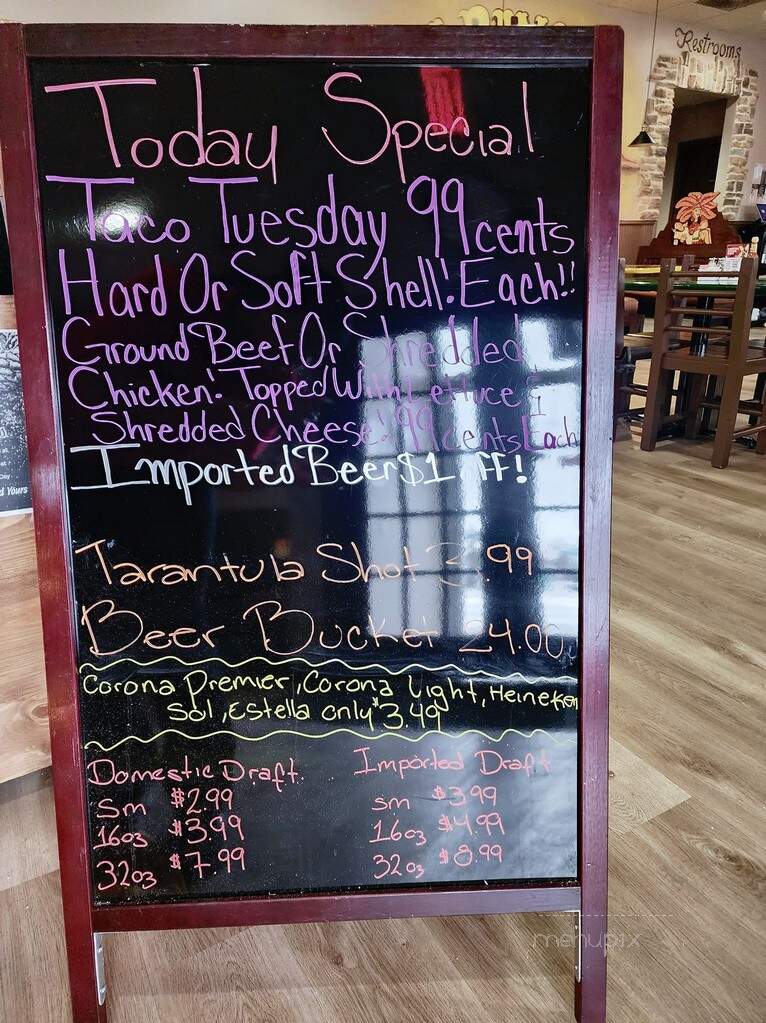 Restrooms
Today Special
Taco Tuesday 99 cents
Hard Or Soft Shell! Each!!
Ground Beef Or Shredded
Chicken! Topped With Lettuce &
Shredded Cheese! 99 cents Each
Imported Beer $1 off!
Tarantula Shot 3.99
Beer Bucket 24.00
Corona Premier, Corona Light, Heineken
Sol, Estella only $3.49
Domestic Draft
sm $2.99
16oz $3.99
32oz $7.99
Imported Draft
sm $3.99
16oz $4.99
32oz $8.99
d Yours
menupix